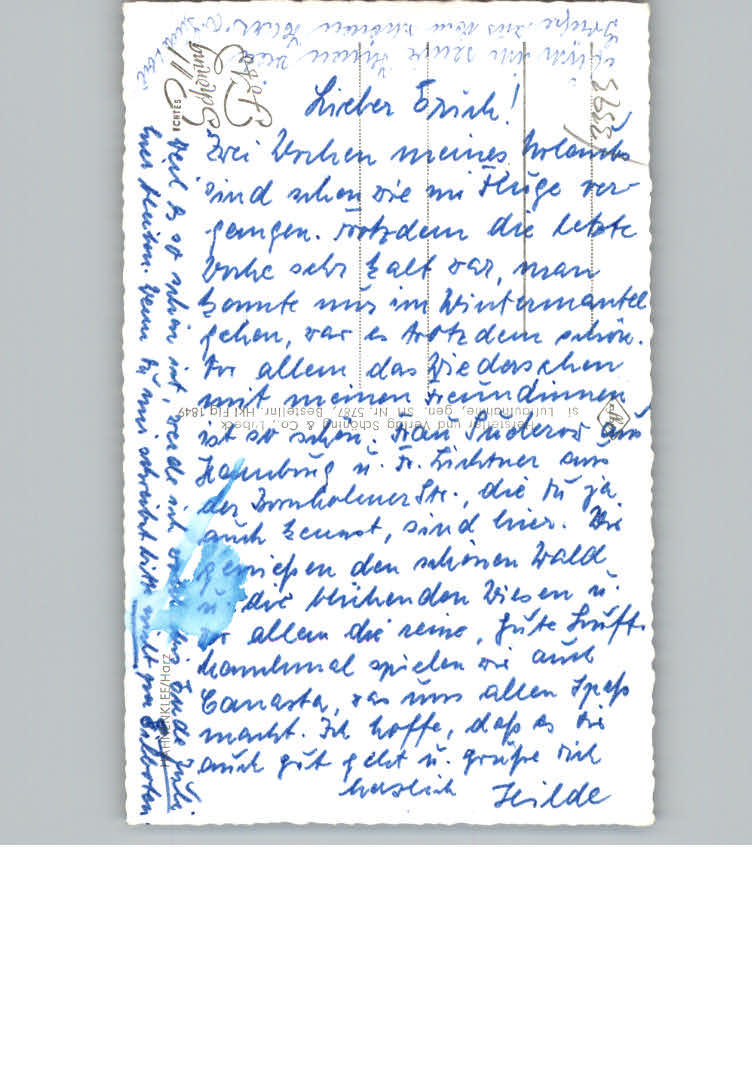 Lieber Erich!
Zwei Wochen meines Urlaubs
sind schon wie im Fluge ver-
gangen. Trotzdem die letzte
Woche sehr kalt war, man
konnte nur im Wintermantel
gehen, war es trotzdem schön.
Vor allem das Wiedersehen
mit meinen Freundinnen
ist so schön. Frau aus
Hamburg u. Fr. Lichtner aus
der Bornholmer Str., die Du ja
auch kennst, sind hier. Wir
genießen den schönen Wald
u. die blühenden Wiesen u.
vor allem die reine, gute Luft.
Manchmal spielen wir auch
Canasta, was uns allen Spaß
macht. Ich hoffe, daß es Dir
auch gut geht u. grüße Dich
herzlich Hilde
Weil es so schön ist, werde ich bis Ende Juli
hier bleiben. Wenn Du mir schreibst bitte nicht per Eilboten.
Auch ich sende Ihnen viele
Grüße aus dem schönen
ECHTES
Schöning
Foto
3393
Hersteller und Verlag Schöning & Co., Lübeck
si Luftaufnahme, gen. SH Nr. 5787, Bestellnr. Hkl Flg 1849
HAHNENKLEE/Harz